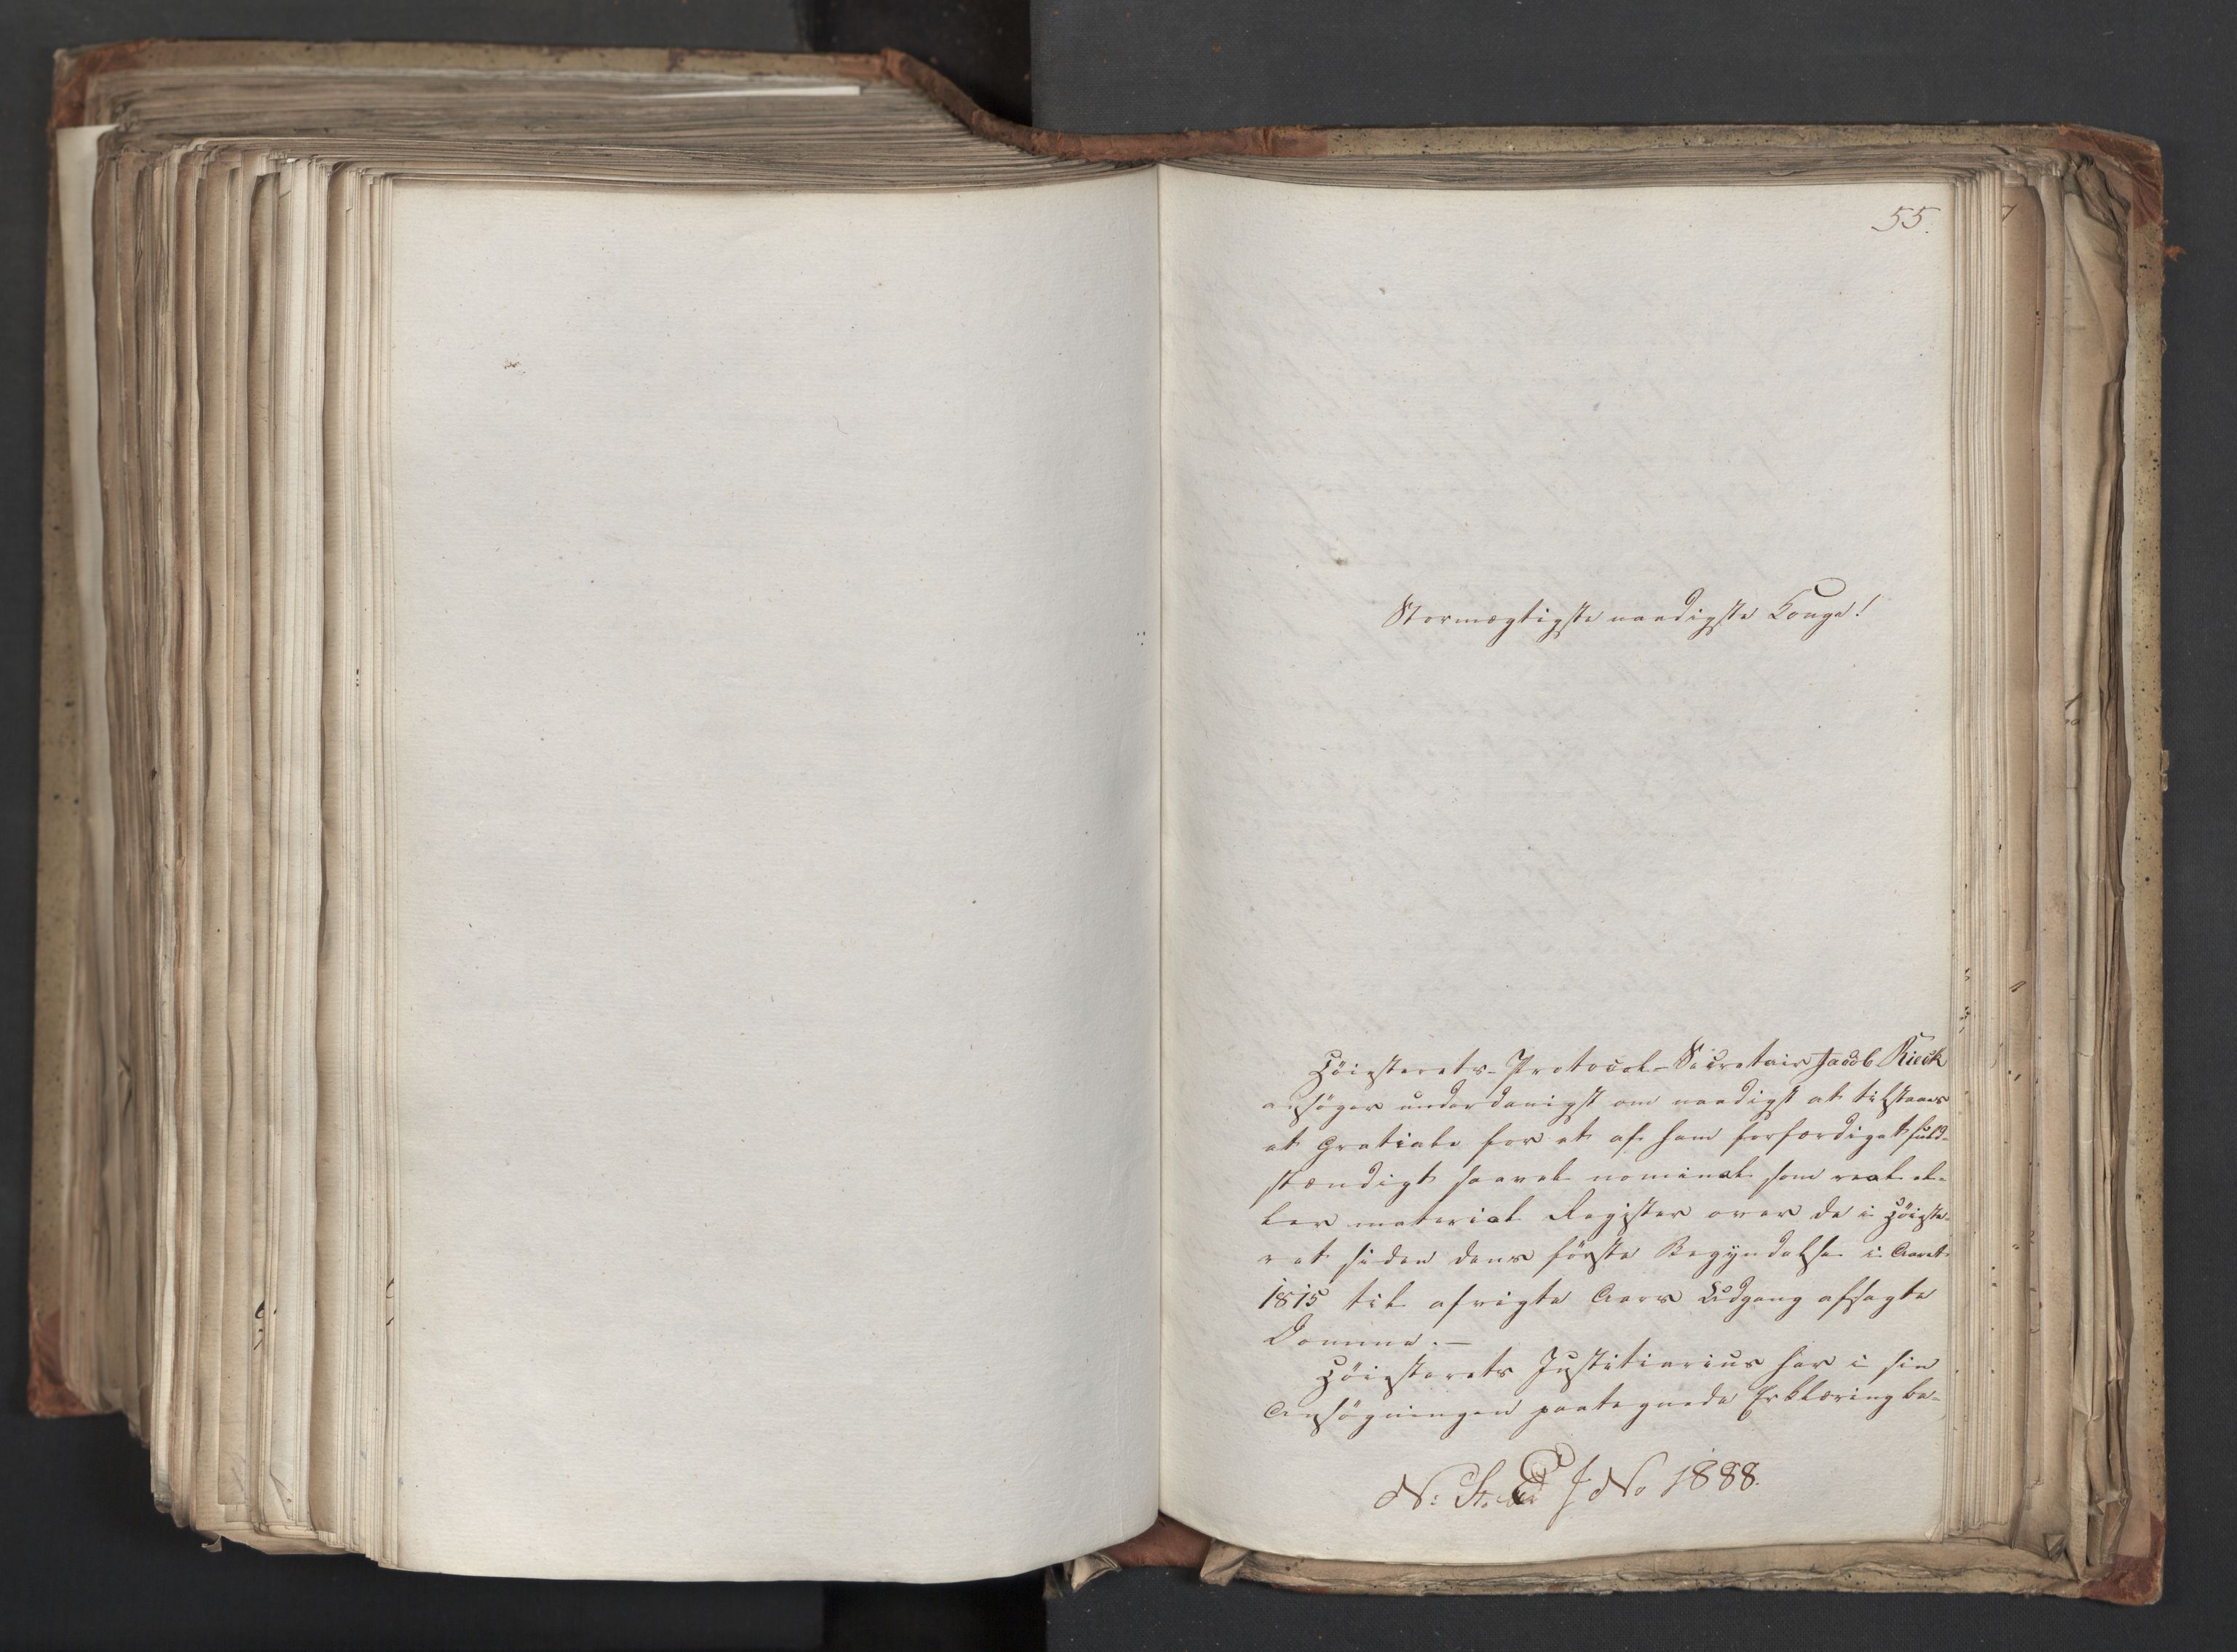 55.
Stormægtigste naadigste Konge!
Höiesterets-Protocol-Secretair Jacob Kieck
ansöger underdanigst om naadigst at tilstaaes
et Gratiale for et af ham forfærdiget fuld-
stændigt saavel nominal som real el-
ler material Register over de i Höieste-
ret siden dens förste Begyndelse i Aaret
1815 til afvigte Aars Udgang afsagte
Domme.—
Höiesterets Justitiarius har i sin
Ansögningen paategnede Erklæring be-
J No 1888.